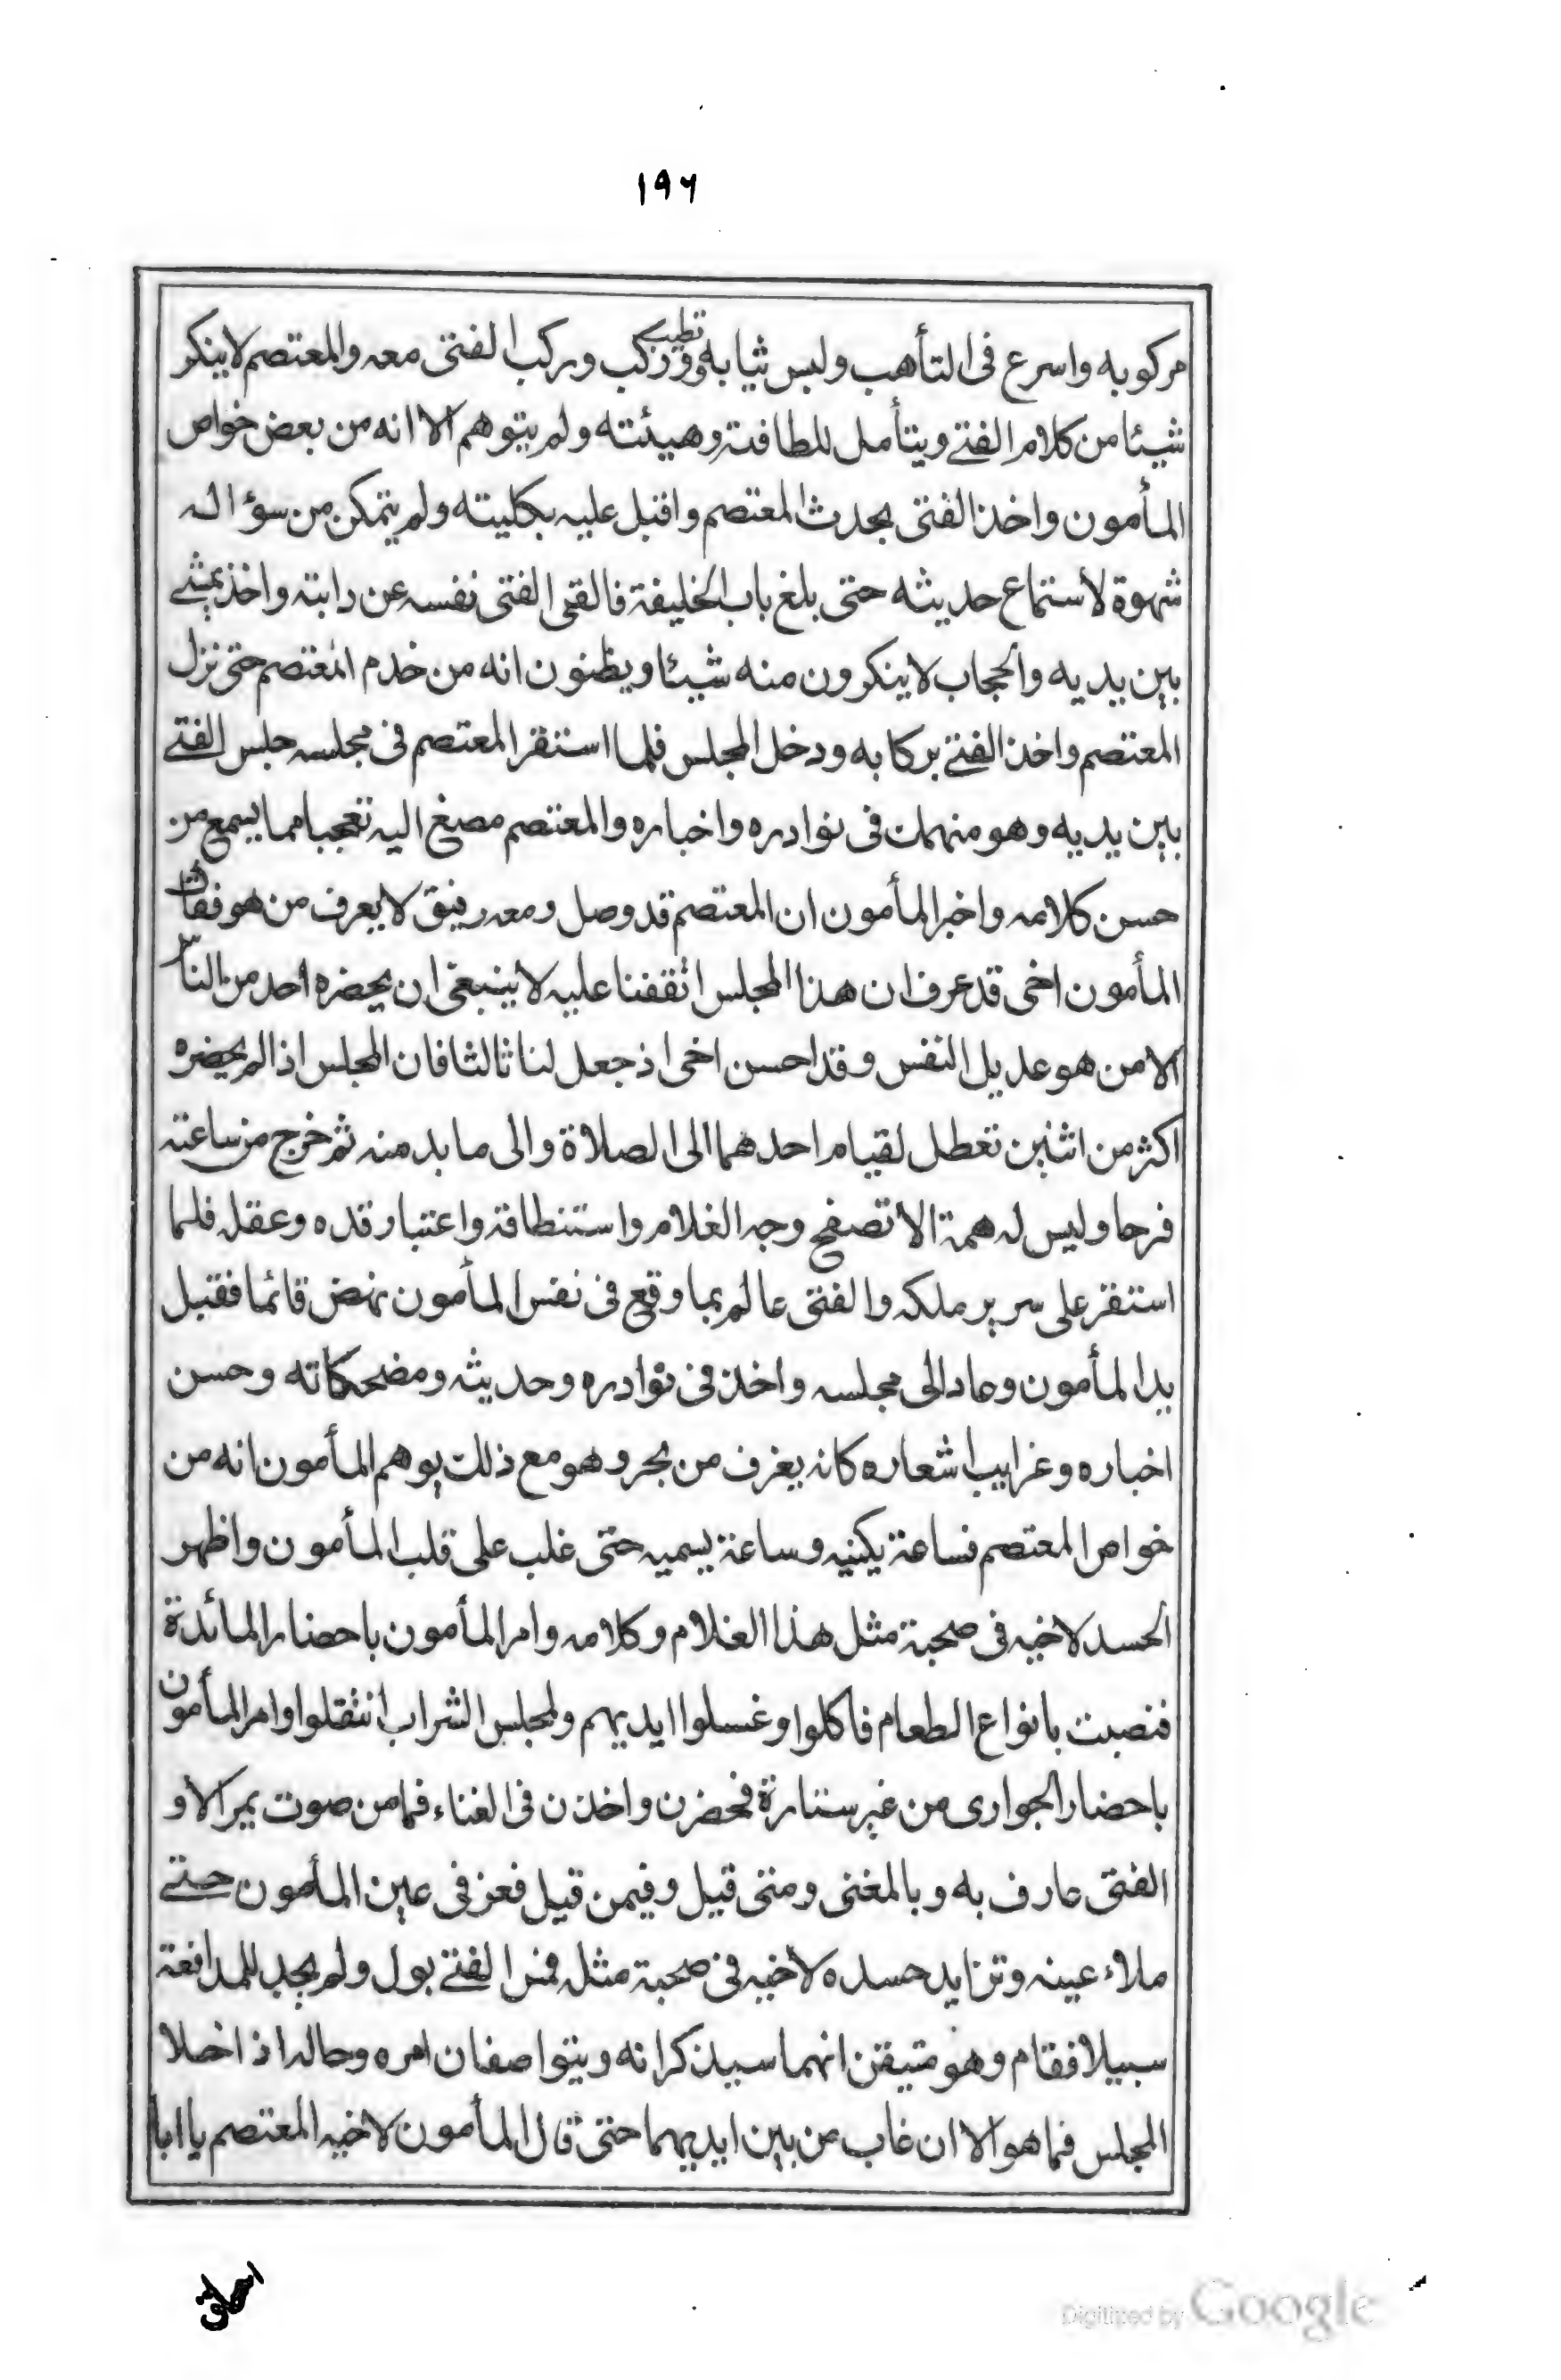 ١٩٦
مركوبه واسرع فى التأهب ولبس ثيابه وتطيب وركب وركب الفتى معه والمعتصم لاينكر
شيئا من كلام الفتى ويتأمل للطافته وهيئته ولم يتوهم الا انه من بعض خواص
المأمون واخذ الفتى يحدث المعتصم واقبل عليه بكليته ولم يتمكن من سؤاله
شهوة لأستماع حديثه حتى بلغ باب الخليفة فالقى الفتى نفسه عن دابته واخذ يمشى
بين يديه والحجاب لاينكرون منه شيئا ويظنون انه من خدم المعتصم حتى نزل
المعتصم واخذ الفتى بركابه ودخل المجلس فلما استقر المعتصم فى مجلسه جلس الفتى
بين يديه وهو منهمك فى نوادره واخباره والمعتصم مصغ اليه تعجبا مما يسمع من
حسن كلامه واخبر المأمون ان المعتصم قد وصل ومعه رفيق لا يعرف من هو فقال
المأمون اخى قد عرف ان هذا المجلس اتفقنا عليه لا ينبغى ان يحضره احد من الناس
الا من هو عديل النفس وقد احسن اخى اذ جعل لنا ثالثا فان المجلس اذا لم يحضره
اكثر من اثنين تعطل لقيام احدهما الى الصلاة والى ما بد منه ثم خرج من ساعته
فرحا وليس له همة الا تصفح وجه الغلام واستنطاقة واعتبار قده وعقله فلما
استقر على سرير ملكه والفتى عالم بما وقع فى نفس المأمون نهض قائما فقبل
يد المأمون وعاد الى مجلسه واخذ فى نوادره وحديثه ومضحكاته وحسن
اخباره وغرايب اشعاره كانه يغرف من بحر وهو مع ذلك يوهم المأمون انه من
خواص المعتصم فساعة يكنيه وساعة يسميه حتى غلب على قلب المأمون واظهر
الحسد لاخيه فى صحبة مثل هذا الغلام وكلامه وامر المأمون باحضار المائدة
فنصبت بانواع الطعام فاكلوا وغسلوا ايديهم ولمجلس الشراب انتقلوا وامر المأمون
باحضار الجوارى من غير ستارة فحضرن واخذن فى الغناء فما من صوت يمر الا و
الفتى عارف به وبالمغنى ومتى قيل وفيمن قيل فعز فى عين المأمون حتى
ملاء عينه وتزايد حسده لاخيه فى صحبة مثله فمس الفتى بول ولم يجد للمدافعة
سبيلا فقام وهو متيقن انهما سيذكرانه ويتواصفان امره وحاله اذ اخلا
المجلس فما هو الا ان غاب من بين ايديهما حتى قال المأمون لاخيه المعتصم يا ابا
اسحاق
Digitized by Google